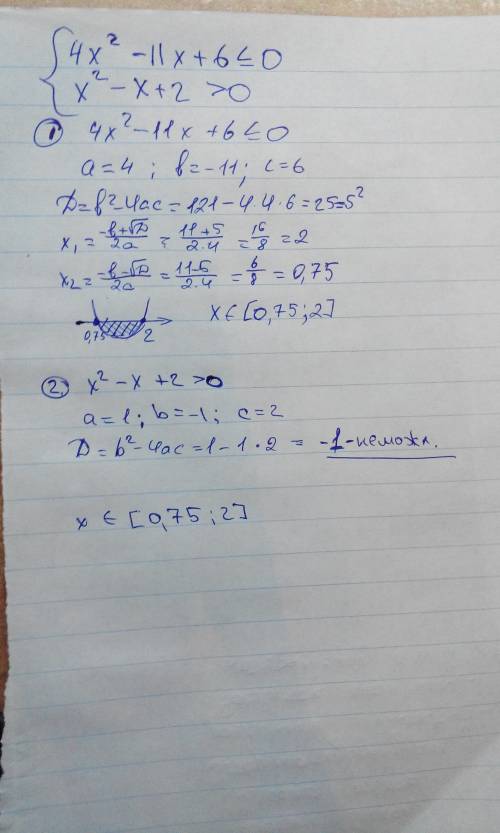 4x² - 11x + 6 ≤ 0
x² - x + 2 > 0
① 4x² - 11x + 6 ≤ 0
a = 4 ; b = -11 ; c = 6
D = b² - 4ac = 121 - 4·4·6 = 25 = 5²
x₁ = (-b+√D)/2a = (11+5)/(2·4) = 16/8 = 2
x₂ = (-b-√D)/2a = (11-5)/(2·4) = 6/8 = 0,75
0,75 2 x ∈ [0,75 ; 2]
② x² - x + 2 > 0
a = 1 ; b = -1 ; c = 2
D = b² - 4ac = 1 - 1·2 = -1 - неможл.
x ∈ [0,75 ; 2]